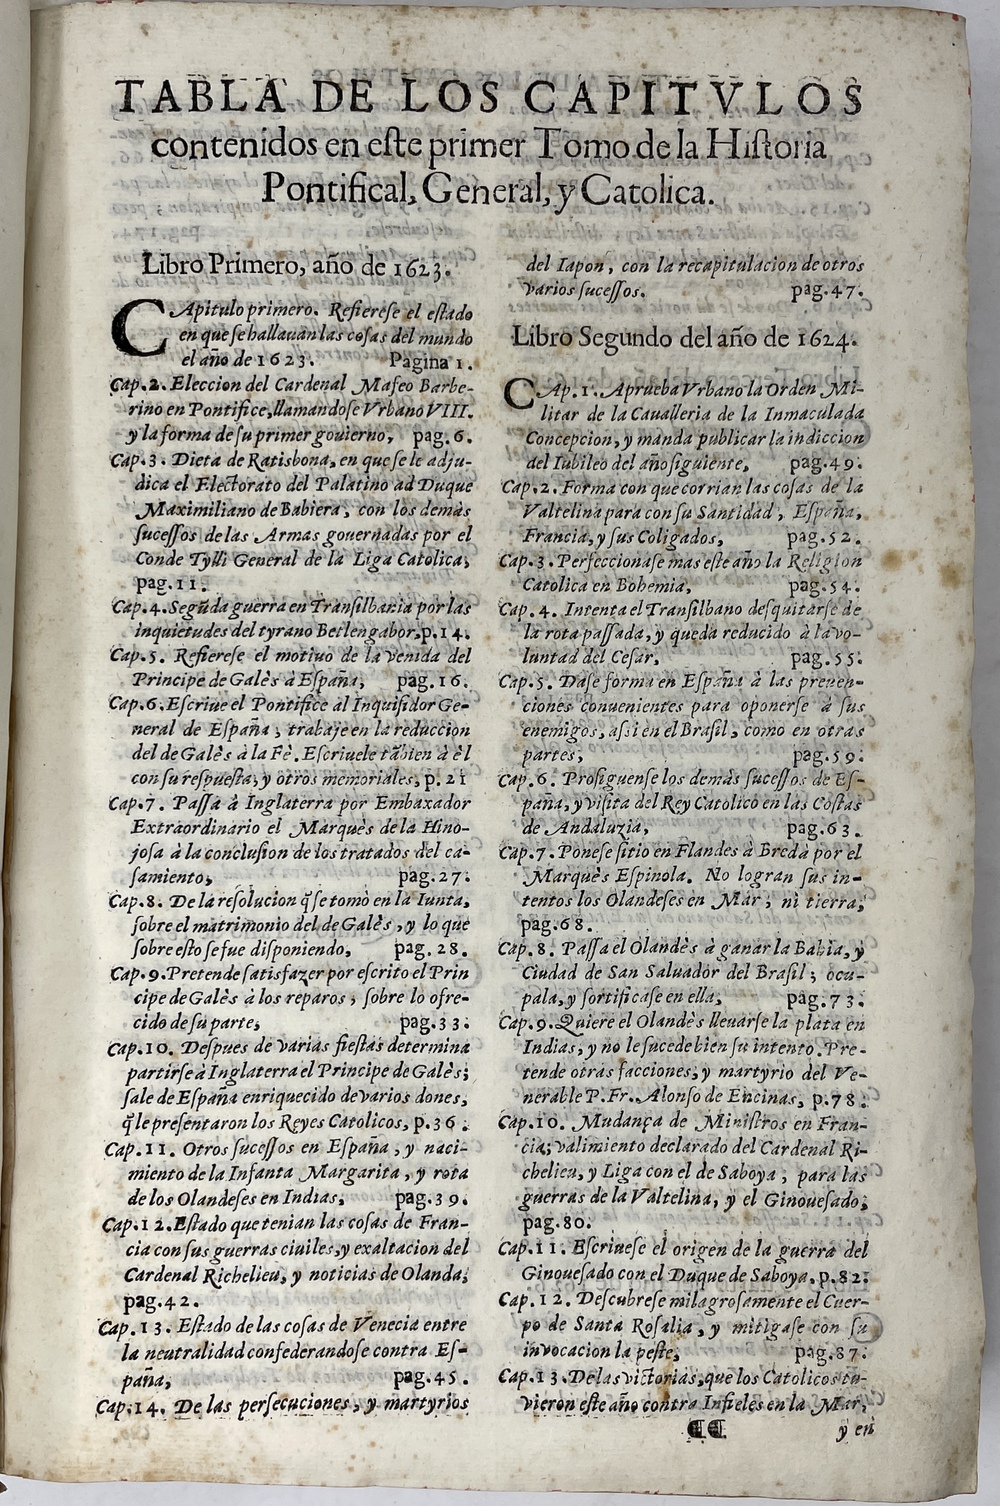 TABLA DE LOS CAPITVLOS
contenidos en eſte primer Tomo de la Hiſtoria
Pontifical, General, y Catolica.
Libro Primero, año de 1623.
CApitulo primero. Refiereſe el eſtado
en que ſe hallauan las coſas del mundo
el año de 1623. Pagina 1.
Cap. 2. Eleccion del Cardenal Mafeo Barbe-
rino en Pontifice, llamandoſe Vrbano VIII.
y la forma de ſu primer gouierno, pag. 6.
Cap. 3. Dieta de Ratisbona, en que ſe le adju-
dica el Electorato del Palatino ad Duque
Maximiliano de Babiera, con los demàs
ſuceſſos de las Armas gouernadas por el
Conde Tylli General de la Liga Catolica,
pag. 11.
Cap. 4. Segũda guerra en Transilbania por las
inquietudes del tyrano Betlengabor, p. 14.
Cap. 5. Refiereſe el motiuo de la venida del
Principe de Galès à Eſpaña, pag. 16.
Cap. 6. Eſcriue el Pontifice al Inquiſidor Ge-
neral de Eſpaña, trabaje en la reduccion
del de Galès à la Fè. Eſcriuele tãbien à èl
con ſu reſpueſta, y otros memoriales, p. 21
Cap. 7. Paſſa à Inglaterra por Embaxador
Extraordinario el Marquès de la Hino-
joſa à la concluſion de los tratados del ca-
ſamiento, pag. 27.
Cap. 8. De la reſolucion q̃ ſe tomò en la Iunta,
ſobre el matrimonio del de Galès, y lo que
ſobre eſto ſe fue diſponiendo, pag. 28.
Cap. 9. Pretende ſatisfazer por eſcrito el Prin
cipe de Galès à los reparos, ſobre lo ofre-
cido de ſu parte, pag. 33.
Cap. 10. Deſpues de varias fieſtas determina
partirſe à Inglaterra el Principe de Galès;
ſale de Eſpaña enriquecido de varios dones,
q̃ le preſentaron los Reyes Catolicos, p. 36.
Cap. 11. Otros ſuceſſos en Eſpaña, y naci-
miento de la Infanta Margarita, y rota
de los Olandeſes en Indias, pag. 39.
Cap. 12. Eſtado que tenian las coſas de Fran-
cia con ſus guerras ciuiles, y exaltacion del
Cardenal Richelieu, y noticias de Olanda,
pag. 42.
Cap. 13. Eſtado de las coſas de Venecia entre
la neutralidad confederandoſe contra Eſ-
paña, pag. 45.
Cap. 14. De las perſecuciones, y martyrios
del Iapon, con la recapitulacion de otros
varios ſuceſſos. pag. 47.
Libro Segundo del año de 1624.
CAp. 1. Aprueba Vrbano la Orden Mi-
litar de la Caualleria de la Inmaculada
Concepcion, y manda publicar la indiccion
del Iubileo del año ſiguiente, pag. 49.
Cap. 2. Forma con que corrian las coſas de la
Valtelina para con ſu Santidad, Eſpaña,
Francia, y ſus Coligados, pag. 52.
Cap. 3. Perfeccionaſe mas eſte año la Religion
Catolica en Bohemia, pag. 54.
Cap. 4. Intenta el Transilbano deſquitarſe de
la rota paſſada, y queda reducido à la vo-
luntad del Ceſar, pag. 55.
Cap. 5. Daſe forma en Eſpaña à las preuen-
ciones conuenientes para oponerſe à ſus
enemigos, aſſi en el Braſil, como en otras
partes, pag. 59.
Cap. 6. Proſiguenſe los demàs ſuceſſos de Eſ-
paña, y viſita del Rey Catolico en las Coſtas
de Andaluzia, pag. 63.
Cap. 7. Poneſe ſitio en Flandes à Bredà por el
Marquès Eſpinola. No logran ſus in-
tentos los Olandeſes en Mar, ni tierra,
pag. 68.
Cap. 8. Paſſa el Olandès à ganar la Babia, y
Ciudad de San Saluador del Braſil; ocu-
pala, y fortificaſe en ella, pag. 73.
Cap. 9. Quiere el Olandès lleuarſe la plata en
Indias, y no le ſucede bien ſu intento. Pre-
tende otras facciones, y martyrio del Ve-
nerable P. Fr. Alonſo de Encinas, p. 78.
Cap. 10. Mudança de Miniſtros en Fran-
cia; valimiento declarado del Cardenal Ri-
chelieu, y Liga con el de Saboya, para las
guerras de la Valtelina, y el Ginoueſado,
pag. 80.
Cap. 11. Eſcriueſe el origen de la guerra del
Ginoueſado con el Duque de Saboya. p. 82.
Cap. 12. Deſcubreſe milagroſamente el Cuer-
po de Santa Roſalia, y mitigaſe con ſu
invocacion la peſte, pag. 87.
Cap. 13. De las victorias, que los Catolicos tu-
vieron eſte año contra Infieles en la Mar,
y en